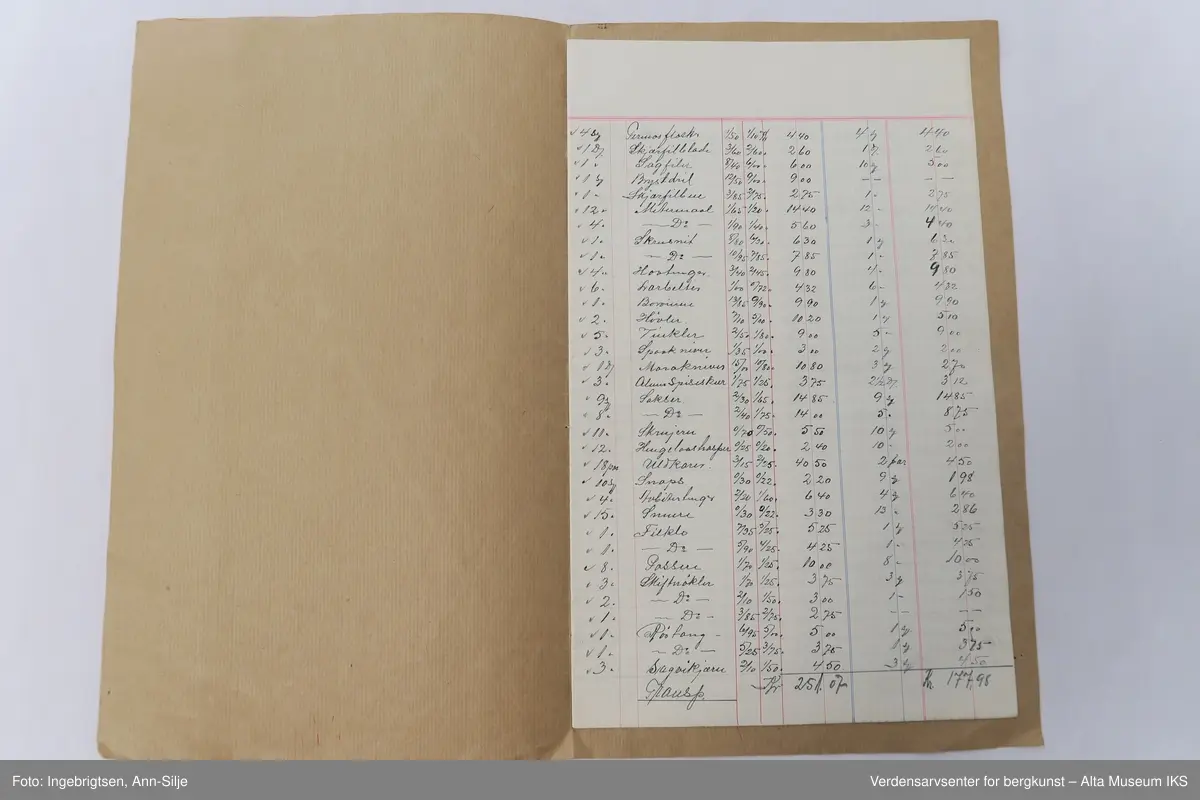 √ 4 stk Termosflasker 1/30 1/10 4 40 4 stk 4 40
√ 1 Dz Skjærfilblade 3/60 2/60 2 60 1 Dz 2 60
√ 1 " Sagfiler 8/40 6/00 6 00 10 stk 5 00
√ 1 stk Brystdril 12/50 9/00 9 00 — — — —
√ 1 - 3/85 2/75 2 75 1 - 2 75
√ 12 - Metermaal 1/65 1/20 14 40 12 - 14 40
√ 4 - — Do — 1/90 1/40 5 60 4 40
√ 1 - 8/80 6/30 6 30 1 stk 6 30
√ 1 - — Do — 10/95 7/85 7 85 1 - 7 85
√ 4 - Hovtenger 3/40 2/45 9 80 4 - 9 80
√ 6 - 1/00 0/72 4 32 6 - 4 32
√ 1 - 13/85 9/90 9 90 1 stk 9 90
√ 2 - Høvler 7/10 5/10 10 20 1 stk 5 10
√ 5 - Vinkler 2/50 1/80 9 00 5 - 9 00
√ 3 - Spookniver 1/35 1/00 3 00 2 stk 2 00
√ 1 Dz Morakniver 15/10 10/80 10 80 3 stk 2 70
√ 3 - Alum Spiseskeer 1/75 1/25 3 75 2 1/2 Dz 3 12
√ 9 stk Sakser 2/30 1/65 14 85 9 stk 14 85
√ 8 - — Do — 2/40 1/75 14 00 5 - 8 75
√ 11 - Skrujern 0/70 0/50 5 50 10 stk 5 00
√ 12 - Hengelaashasper 0/25 0/20 2 40 10 - 2 00
√ 18 par Uldkarer 3/15 2/25 40 50 2 par 4 50
√ 10 stk Snaps 0/30 0/22 2 20 9 stk 1 98
√ 4 - Hvbitertenger 2/20 1/60 6 40 4 stk 6 40
√ 15 - Snurer 0/30 0/22 3 30 13 - 2 86
√ 1 - Filklo 7/35 5/25 5 25 1 stk 5 25
√ 1 - — Do — 5/90 4/25 4 25 1 - 4 25
√ 8 - Passere 1/70 1/25 10 00 8 - 10 00
√ 3 - Skiftnøkler 1/70 1/25 3 75 3 stk 3 75
√ 2 - — Do — 2/10 1/50 3 00 1 - 1 50
√ 1 - — Do — 3/85 2/75 2 75 — — — —
√ 1 - Rørtang - 6/95 5/00 5 00 1 stk 5 00
√ 1 - — Do — 5/25 3/75 3 75 1 stk 3 75
√ 3 - Sagvikjern 2/10 1/50 4 50 3 stk 4 50
Transp. Kr 251.07 Kr 177,98
Foto: Ingebrigtsen, Ann-Silje
Verdensarvsenter for bergkunst – Alta Museum IKS